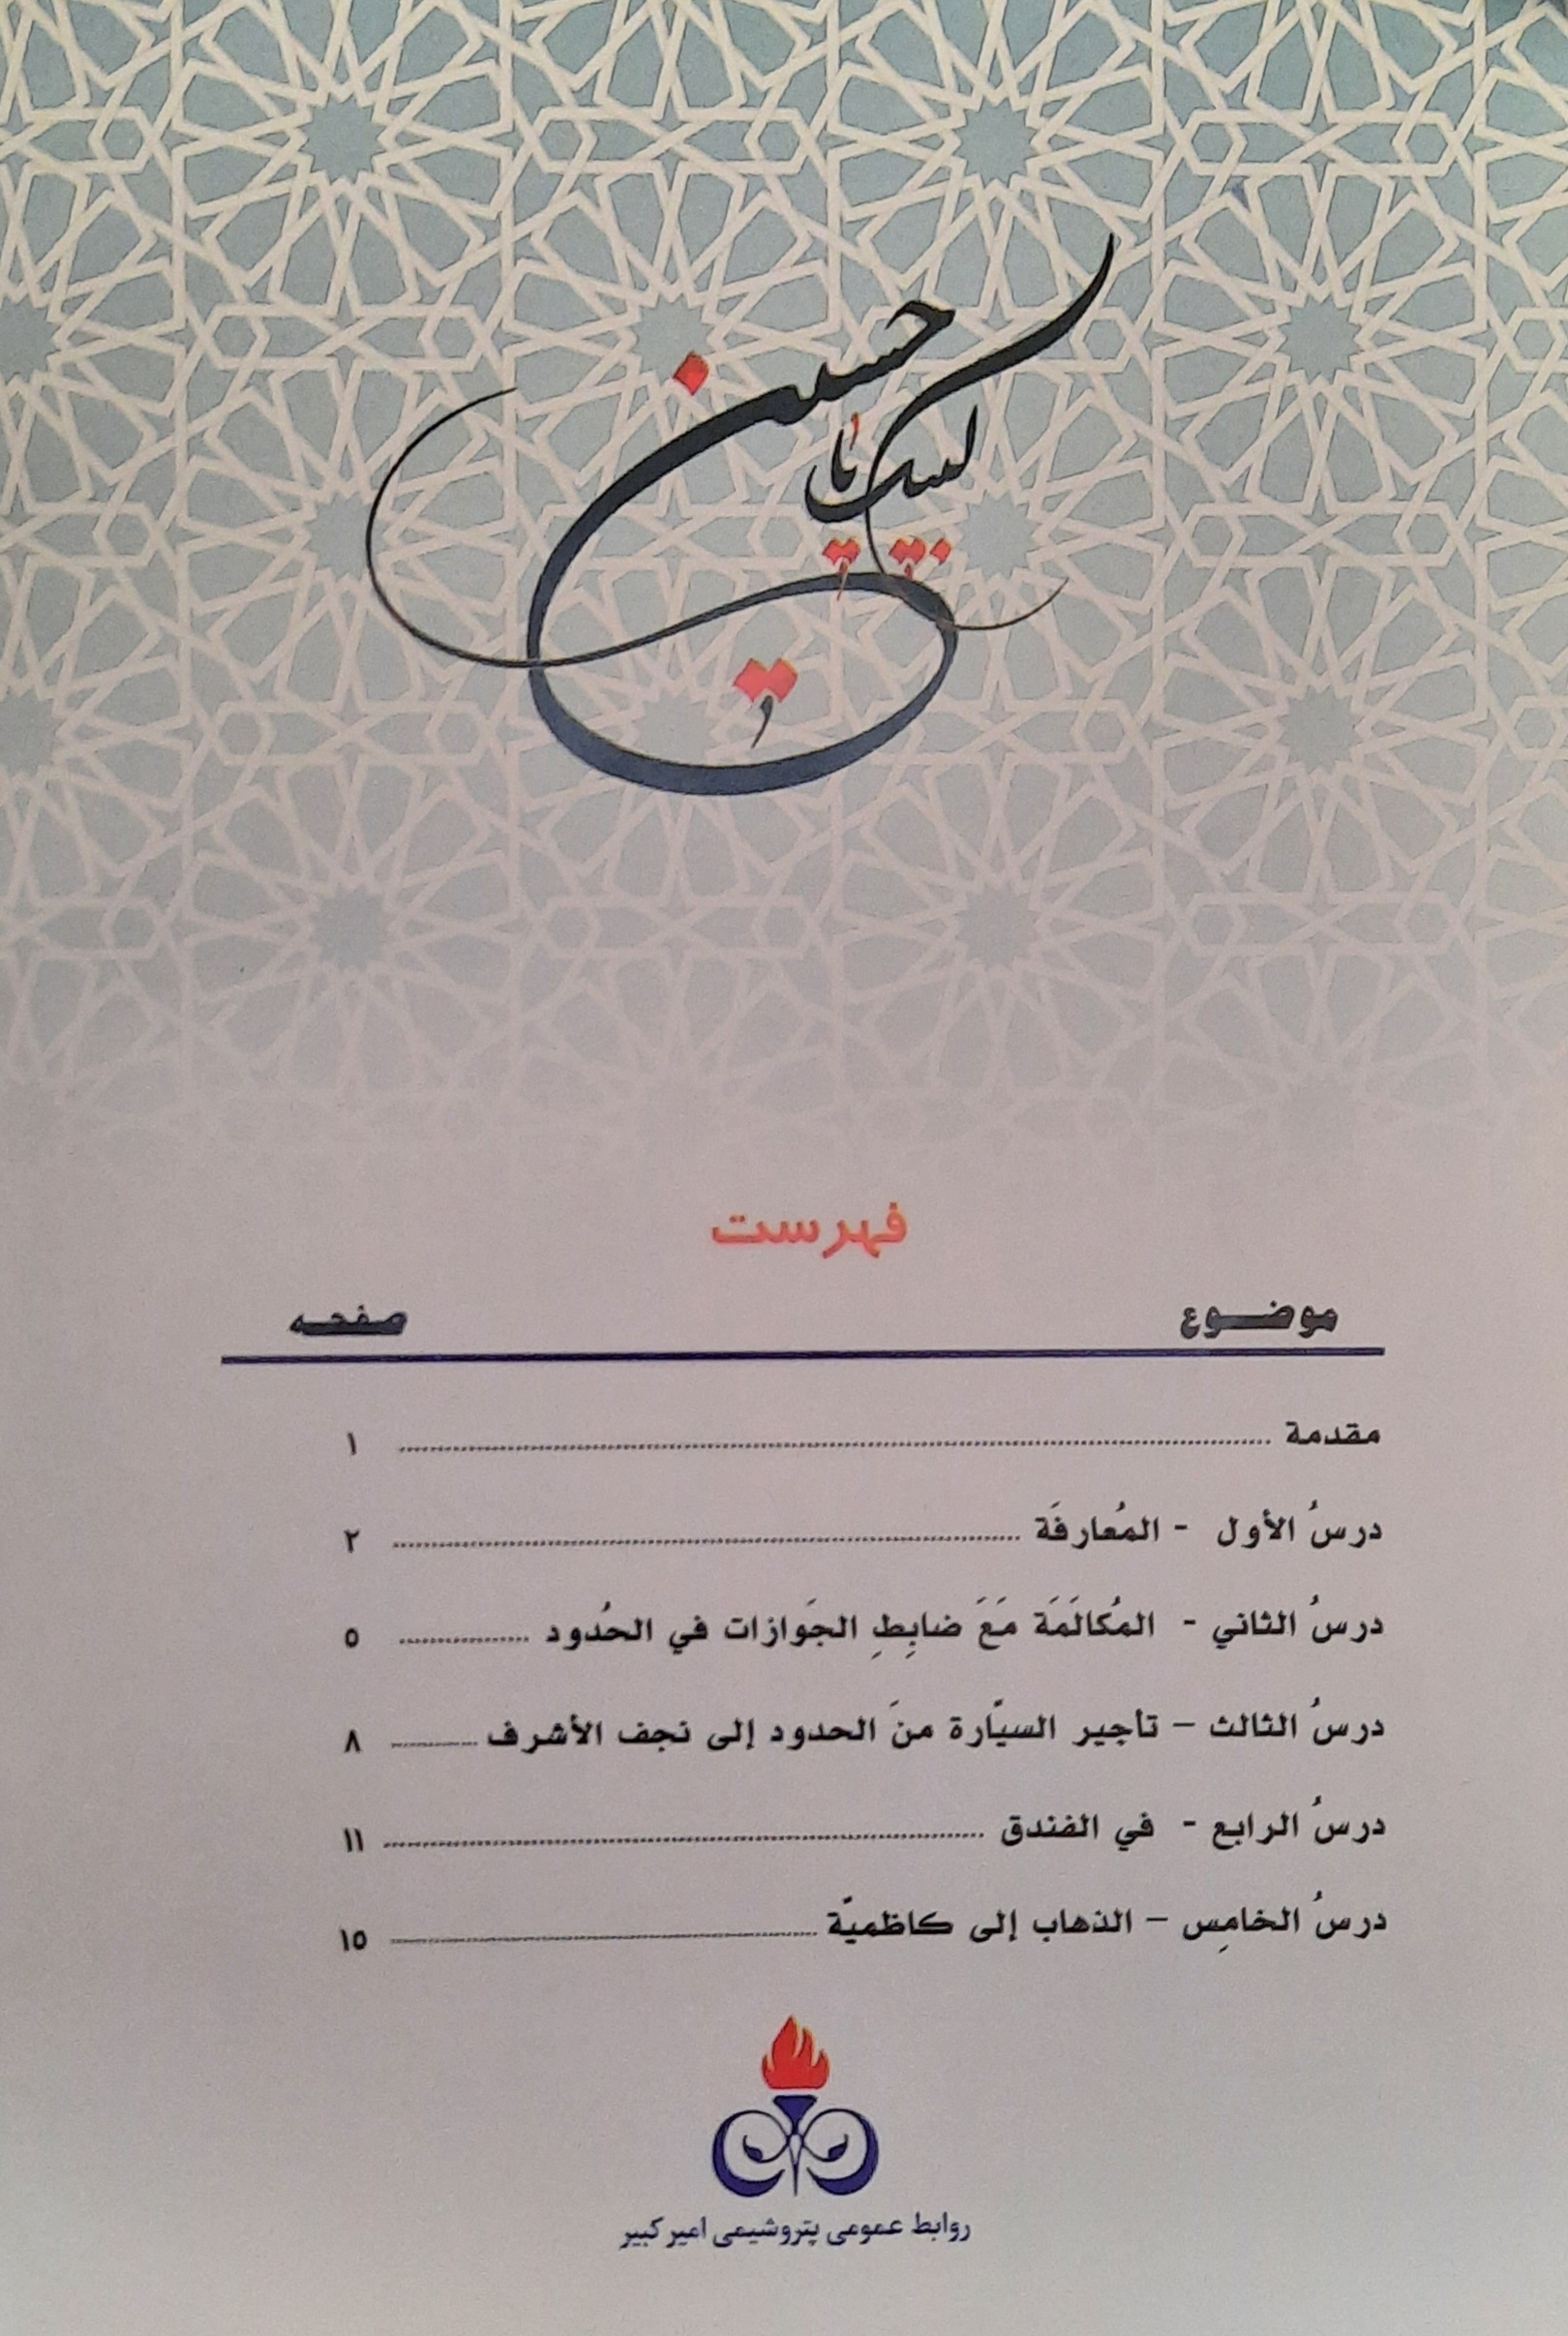 لبیک یا حسین
فهرست
موضـــوع صـفـحـه
مقدمة ........................ ۱
درسُ الأول - المُعارفَة ........................ ۲
درسُ الثاني - المُكالَمَة مَعَ ضابِطِ الجَوازات في الحُدود ............ ٥
درسُ الثالث – تأجير السيّارة منَ الحدود إلى نجف الأشرف ............ ۸
درسُ الرابع - في الفندق ........................ ۱۱
درسُ الخامِس – الذهاب إلى كاظميّة ........................ ۱٥
روابط عمومی پتروشیمی امیر کبیر